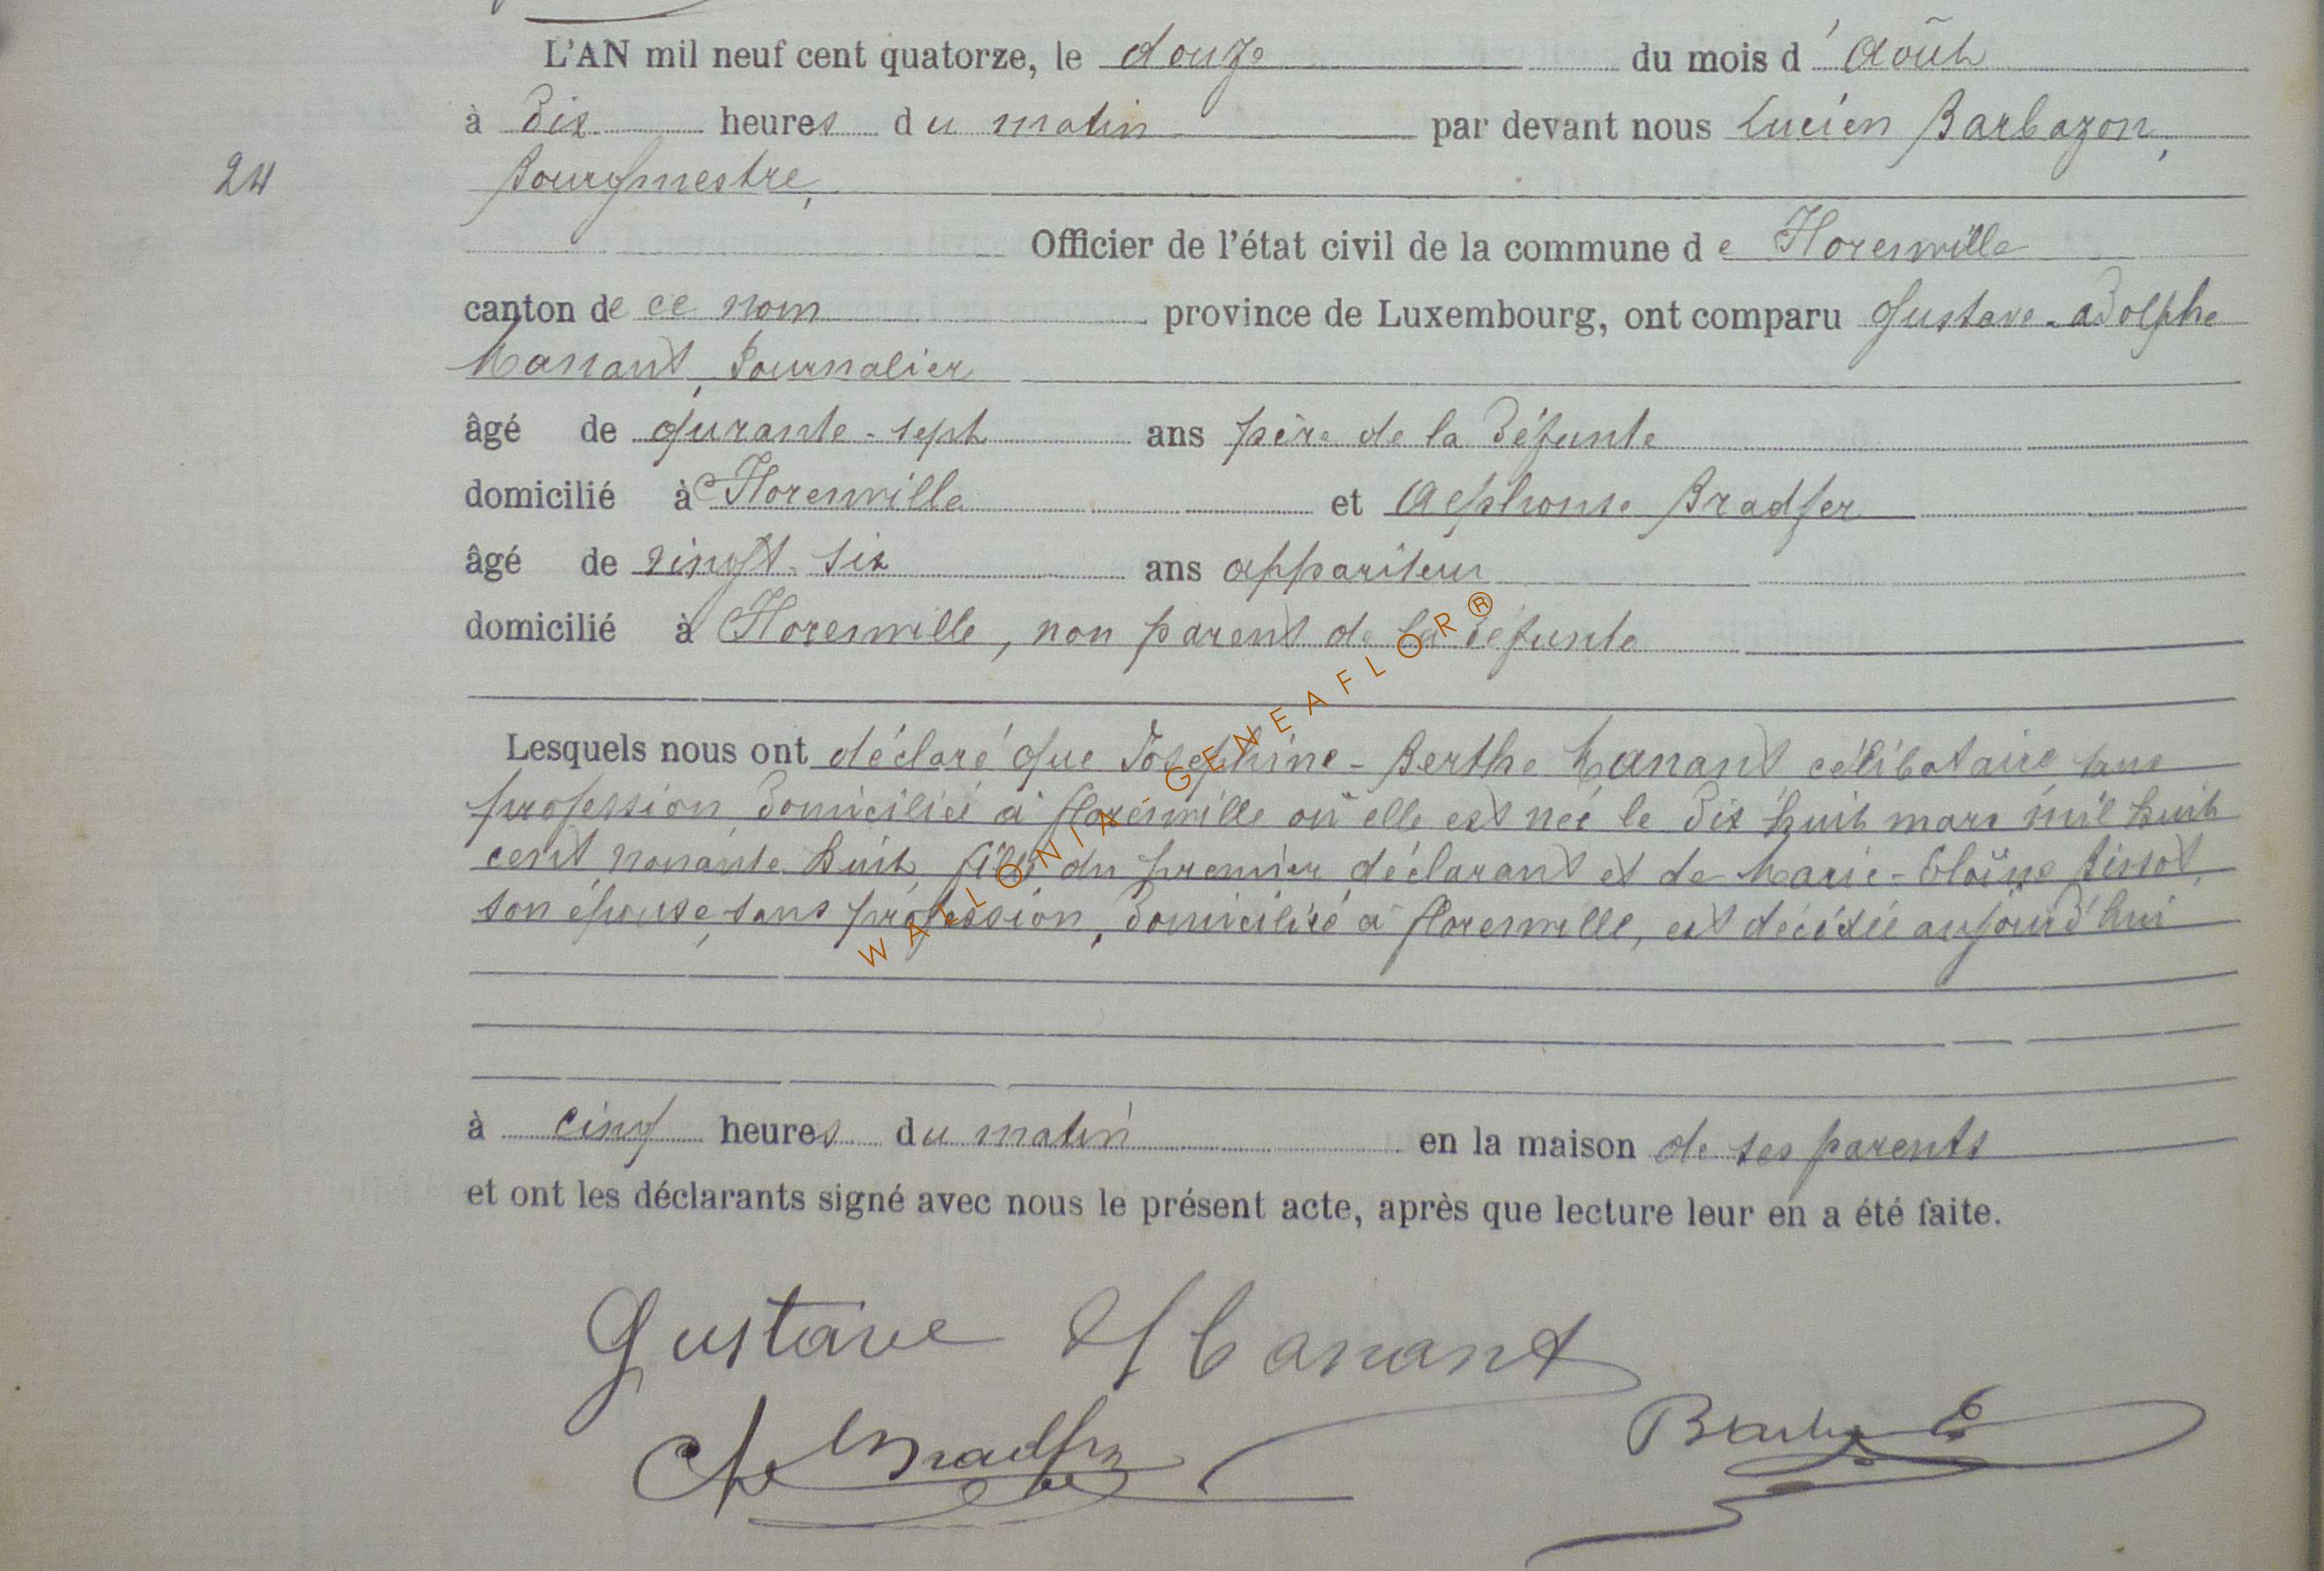 L'AN mil neuf cent quatorze, le douze du mois d'Août
à Dix heures du matin par devant nous Lucien Barbazon,
24
Bourgmestre,
Officier de l'état civil de la commune de Florenville
canton de ce nom province de Luxembourg, ont comparu Gustave-Adolphe
Manant, Journalier
âgé de qurante-sept ans père de la Défunte
domicilié à Florenville et Alphonse Bradfer
âgé de vingt-six ans appariteur
domicilié à Florenville, non parent de la Défunte
Lesquels nous ont déclaré que Joséphine-Berthe Manant célibataire sans
profession, Domiciliée à Florenville où elle est née le Dix huit mars mil huit
cent nonante huit, fille du premier déclarant et de Marie- son épouse, sans profession, Domiciliée à Florenville, est décédée aujourd'hui
à cinq heures du matin en la maison de ses parents
et ont les déclarants signé avec nous le présent acte, après que lecture leur en a été faite.
Gustave Manant
Bradfer
WALLONIA-GENEAFLOR®